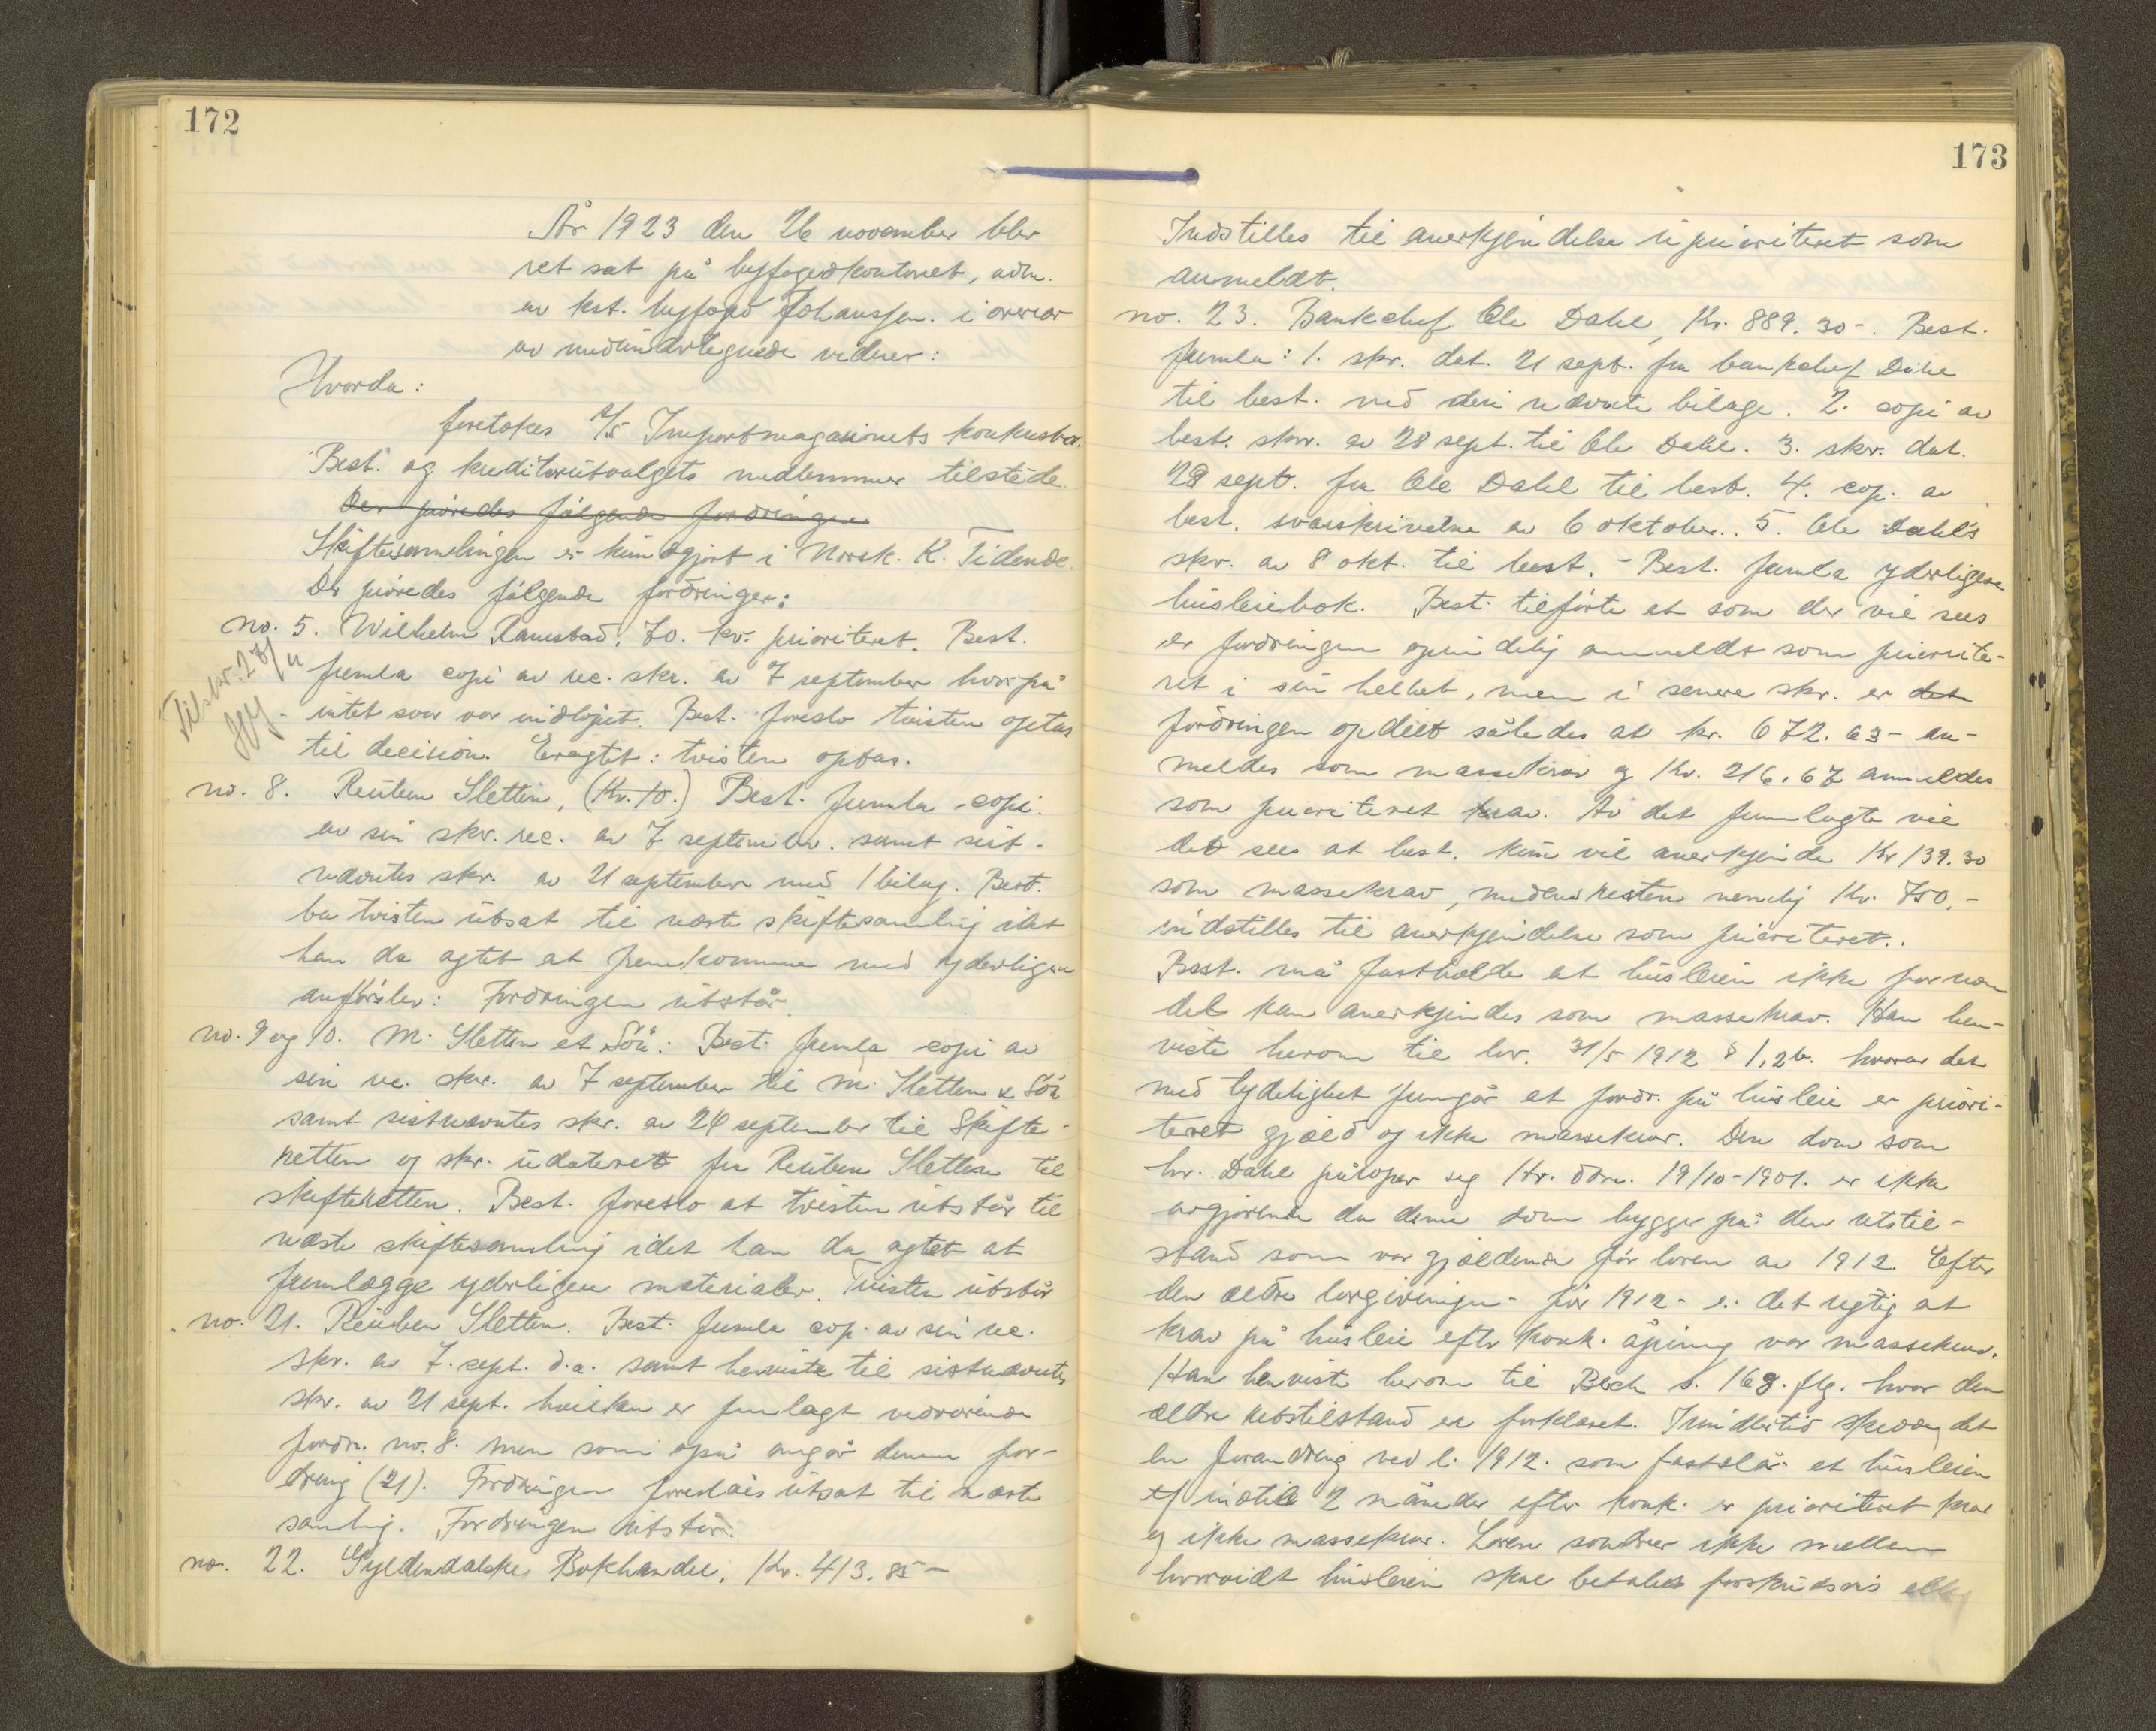 172
År 1923 den 26 november blev
ret sat på byfogedkontoret, adm.
av kst. byfogd Johanssen. i overvær
av medundertegnede vidner:
Hvorda:
foretokes A/S Importmagasinets konkursbo.
Best. og kreditorutvalgets medlemmer tilstede.
Der prøvedes følgende fordringer
Skiftesamlingen er kundgjort i Norsk. K. Tidende.
Der prøvedes følgende fordringer:
no. 5. Wilhelm Ramstad, 70. kr. prioritert. Best.
Tilskr. 27/11
fremla copi av rec. skr. av 7 september hvorpå
intet svar var indløpet. Best. foreslo tvisten optas
til decision. Eragtet: tvisten optas.
no. 8. Reuben Sletten, (Kr. 10.) Best. fremla copi
av sin skr. rec. av 7 september. samt sist-
nævntes skr. av 21 september med 1 bilag. Best.
ba tvisten utsat til næste skiftesamling idet
han da agtet at fremkomme med yderligere
anførsler: Fordringen utstår.
no. 9 og 10. M. Sletten et Søn: Best. fremla copi av
sin rec. skr. av 7 september til M. Sletten & Søn
samt sistnævntes skr. av 26 september til Skifte-
retten og skr. udateret fra Reuben Sletten til
skifteretten. Best. foreslo at tvisten utstår til
næste skiftesamling idet han da agtet at
fremlægge yderligere materialer. Tvisten utstår
no. 21. Reuben Sletten. Best. fremla cop. av sin rec.
skr. av 7. sept. d.a. samt henviste til sistnævntes
skr. av 21 sept. hvilken er fremlagt vedrørende
fordr. no. 8. men som også angår denne for-
dring (21). Fordringen foreslåes utsat til næste
samling. Fordringen utstår.
no. 22. Gyldendalske Bokhandel, Kr. 413.85 -
173
Indstilles til anerkjendelse uprioriteret som
anmeldt.
no. 23. Bankchef Ole Dahl, Kr. 889.30 -. Best.
fremla: 1. skr. dat. 21 sept. fra bankchef Dahl
til best. med deri nævnte bilage. 2. copi av
best. skr. av 28 sept. til Ole Dahl. 3. skr. dat.
29 sept. fra Ole Dahl til best. 4. cop. av
best. svarskrivelse av 6 oktober. 5. Ole Dahl's
skr. av 8 okt. til best. - Best. fremla yderligere
husleiebok. Best. tilførte at som der vil sees
er fordringen oprindelig anmeldt som priorite-
ret i sin helhet, men i senere skr. er det
fordringen opdelt således at kr. 672.63 - an-
meldes som massekrav og Kr. 216.67 anmeldes
som prioriteret krav. Av det fremlagte vil
det sees at best. kun vil anerkjende Kr 139.30
som massekrav, medens resten nemlig Kr. 750.-
indstilles til anerkjendelse som prioriteret.
Best. må fastholde at husleien ikke for noen
del kan anerkjendes som massekrav. Han hen-
viste herom til lov. 31/5 1912 § 1, 2b. hvorav det
med tydelighet fremgår at fordr. på husleie er priori-
teret gjæld og ikke massekrav. Den dom som
hr. Dahl påroper seg Hr. dom. 19/10-1901. er ikke
avgjørende da denne dom bygger på den retstil-
stand som var gjældende før loven av 1912. Efter
den ældre lovgivning - før 1912 - er det rigtig at
krav på husleie efter konk. åpning var massekrav.
Han henviste herom til Bech s. 168. flg. hvor den
ældre retstilstand er forklaret. Imidlertid skedde det
en forandring ved l. 1912. som fastslår at husleien
indtil 2 måneder efter konk. er prioriteret krav
og ikke massekrav. Loven sondrer ikke mellem
hvorvidt husleien skal betales forskudsvis eller